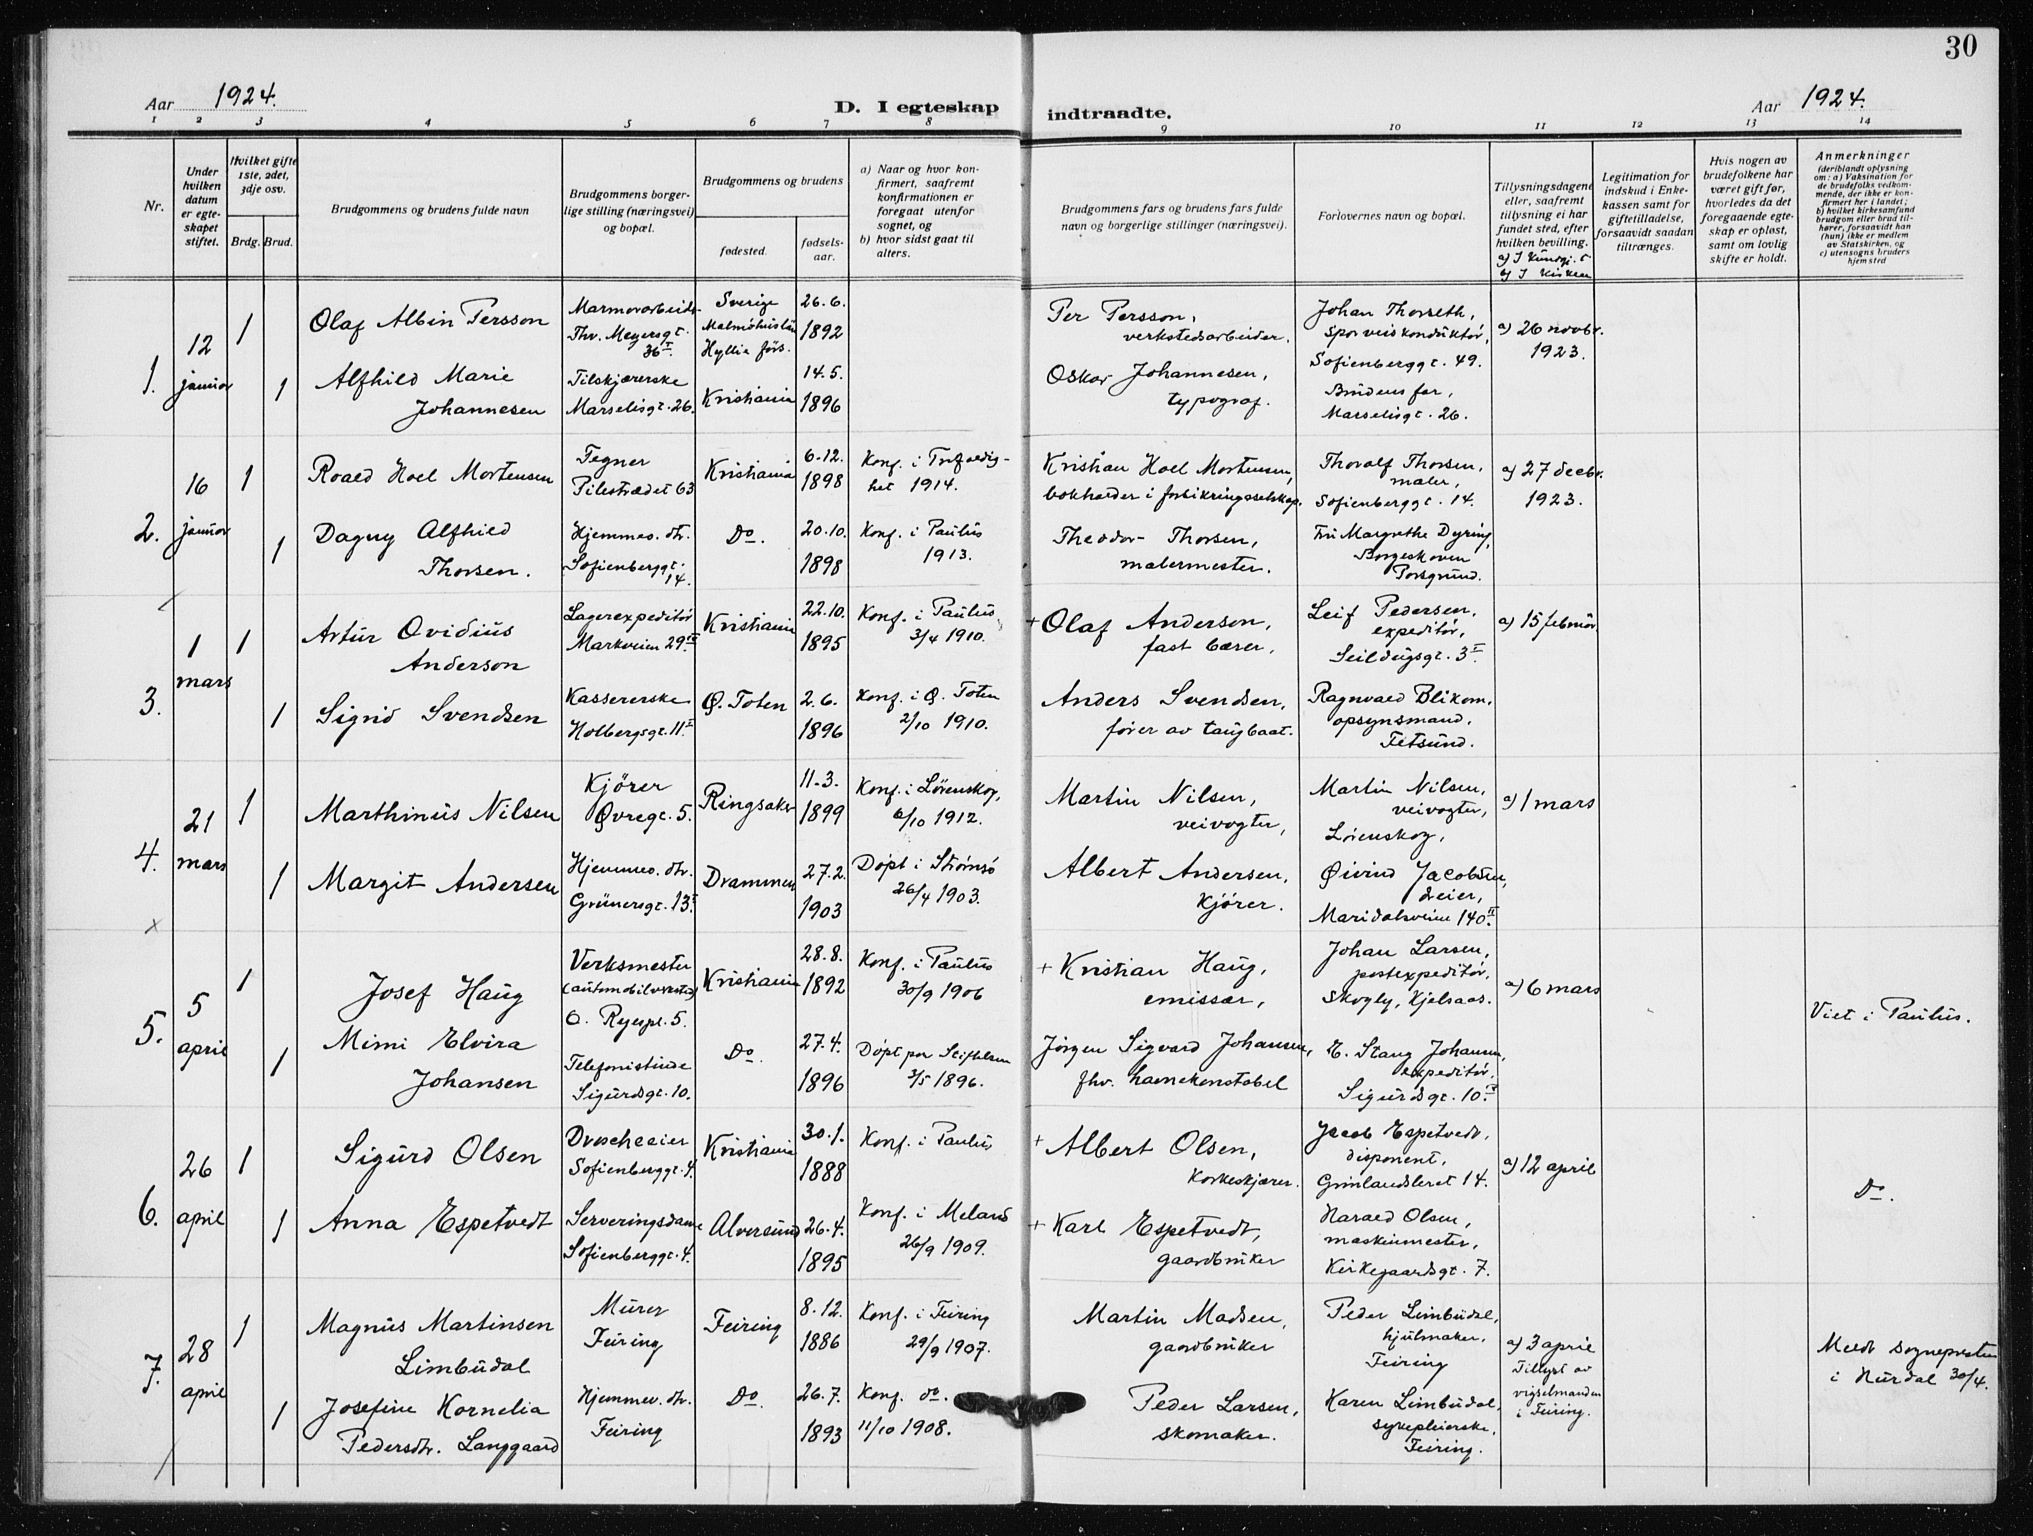 30
Aar 1924.
D. I egteskap indtraadte.
Aar 1924.
1 2 3 4 5 6 7 8 9 10 11 12 13 14
Nr.
Under hvilken datum er egteskapet stiftet.
Hvilket gifte 1ste, 2det, 3dje osv.
Brdg. Brud.
Brudgommens og brudens fulde navn
Brudgommens borgerlige stilling (næringsvei) og bopæl.
Brudgommens og brudens
fødested.
fødselsaar.
a) Naar og hvor konfirmert, saafremt konfirmationen er foregaat utenfor sognet, og
b) hvor sidst gaat til alters.
Brudgommens fars og brudens fars fulde navn og borgerlige stillinger (næringsvei).
Forlovernes navn og bopæl.
Tillysningsdagene eller, saafremt tillysning ei har fundet sted, efter hvilken bevilling.
a) I Kundgj.t
b) I Kirken
Legitimation for indskud i Enkekassen samt for giftetilladelse, forsaavidt saadan tiltrænges.
Hvis nogen av brudefolkene har været gift før, hvorledes da det foregaaende egteskap er opløst, samt om lovlig skifte er holdt.
Anmerkninger
(deriblandt oplysning om: a) Vaksination for de brudefolks vedkommende, der ikke er konfirmert her i landet; b) hvilket kirkesamfund brudgom eller brud tilhører, forsaavidt han (hun) ikke er medlem av Statskirken, og c) utensogns bruders hjemsted
1.
12 januar
1
Olaf Albin Persson
Marmorarbeider
Thv. Meyersgt. 36 I.
Sverige
Malmöhuslän
Hyllie förs.
26.6. 1892
Per Persson,
verkstedsarbeider.
Johan Thorseth,
sporveiskonduktør,
Sofienberggt. 49.
a) 26 novbr. 1923.
1
Alfhild Marie
Johannesen
Tilskjærerske
Marselisgt. 26.
Kristiania
14.5. 1896
Oskar Johannesen,
typograf.
Brudens far,
Marselisgt. 26.
2.
16 januar
1
Roald Hoel Mortensen
Tegner
Pilestrædet 63
Kristiania
6.12. 1898
Konf. i Trefoldighet 1914.
Kristian Hoel Mortensen,
bokholder i forsikringsselskap.
Thoralf Thorsen,
maler,
Sofienberggt. 14.
a) 27 decbr. 1923.
1
Dagny Alfhild
Thorsen.
Hjemmev. dtr.
Sofienberggt. 14.
Do.
20.10. 1898
Konf. i Paulus 1913.
Theodor Thorsen,
malermester.
Fru Margrethe Dyring,
Borgeskoven
Porsgrund.
3.
1 mars
1
Artur Ovidius
Anderson
Lagerexpeditør
Markveien 29 III
Kristiania
22.10. 1895
Konf. i Paulus 3/4 1910.
+ Olaf Anderson,
fast bærer,
Leif Pedersen,
expeditør,
Seildugsgt. 3 I.
a) 15 februar
1
Sigrid Svendsen
Kassererske
Holbergsgt. 11 I
Ø. Toten
2.6. 1896
Konf. i Ø. Toten 2/10 1910.
Anders Svendsen,
fører av taugbaat.
Ragnvald Blikom,
opsynsmand,
Fetsund.
4.
21 mars
1
Marthinus Nilsen
Kjører
Øvregt. 5.
Ringsaker
11.3. 1899
Konf. i Lørenskog, 6/10 1912.
Martin Nilsen,
veivogter,
Martin Nilsen,
veivogter,
Lørenskog,
a) 1 mars
1
Margit Andersen
Hjemmev. dtr.
Grünersgt. 13 I.
Drammen
27.2. 1903
Døpt i Strømsø 26/4 1903.
Albert Andersen,
Kjører.
Øivind Jacobsen,
dreier,
Maridalsveien 140 II.
5.
5 april
1
Josef Haug
Verksmester
(automobilverksted)
O. Ryespl. 5.
Kristiania
28.8. 1892
Konf. i Paulus 30/9 1906
+ Kristian Haug,
emissær,
Johan Larsen,
postexpeditør,
Skogly, Kjelsaas.
a) 6 mars
Viet i Paulus.
1
Mimi Elvira
Johansen
Telefonistinde
Sigurdsgt. 10.
Do.
27.4. 1896
Døpt paa Stiftelsen 3/5 1896.
Jørgen Sigvard Johansen,
fhv. havnekonstabel
E. Stang Johansen,
expeditør,
Sigurdsgt. 10.
6.
26 april
1
Sigurd Olsen
Droscheeier
Sofienberggt. 4.
Kristiania
30.1. 1888
Konf. i Paulus
+ Albert Olsen,
Korkeskjærer.
Jacob Espetvedt,
disponent,
Grønlandsleret 14.
a) 12 april
Do.
1
Anna Espetvedt
Serveringsdame
Sofienberggt. 4.
Alversund
26.4. 1895
Konf. i Meland 26/9 1909.
+ Karl Espetvedt,
gaardbruker
Harald Olsen,
maskinmester,
Kirkegaardsgt. 7.
7.
28 april
1
Magnus Martinsen
Limbudal
Murer
Feiring
Feiring
8.12. 1886
Konf. i Feiring 29/9 1907.
Martin Madsen,
gaardbruker
Peder Limbudal,
hjulmaker,
Feiring
a) 3 april
Tillyst av
vigselmanden
i Feiring.
Meldt sogneprsten
i Hurdal 30/4.
1
Josefine Kornelia
Pedersdtr. Langgaard
Hjemmev. dtr.
Feiring
Do.
26.7. 1893
Konf. do. 11/10 1908.
Peder Larsen,
skomaker.
Karen Limbudal,
sykepleierske,
Feiring.